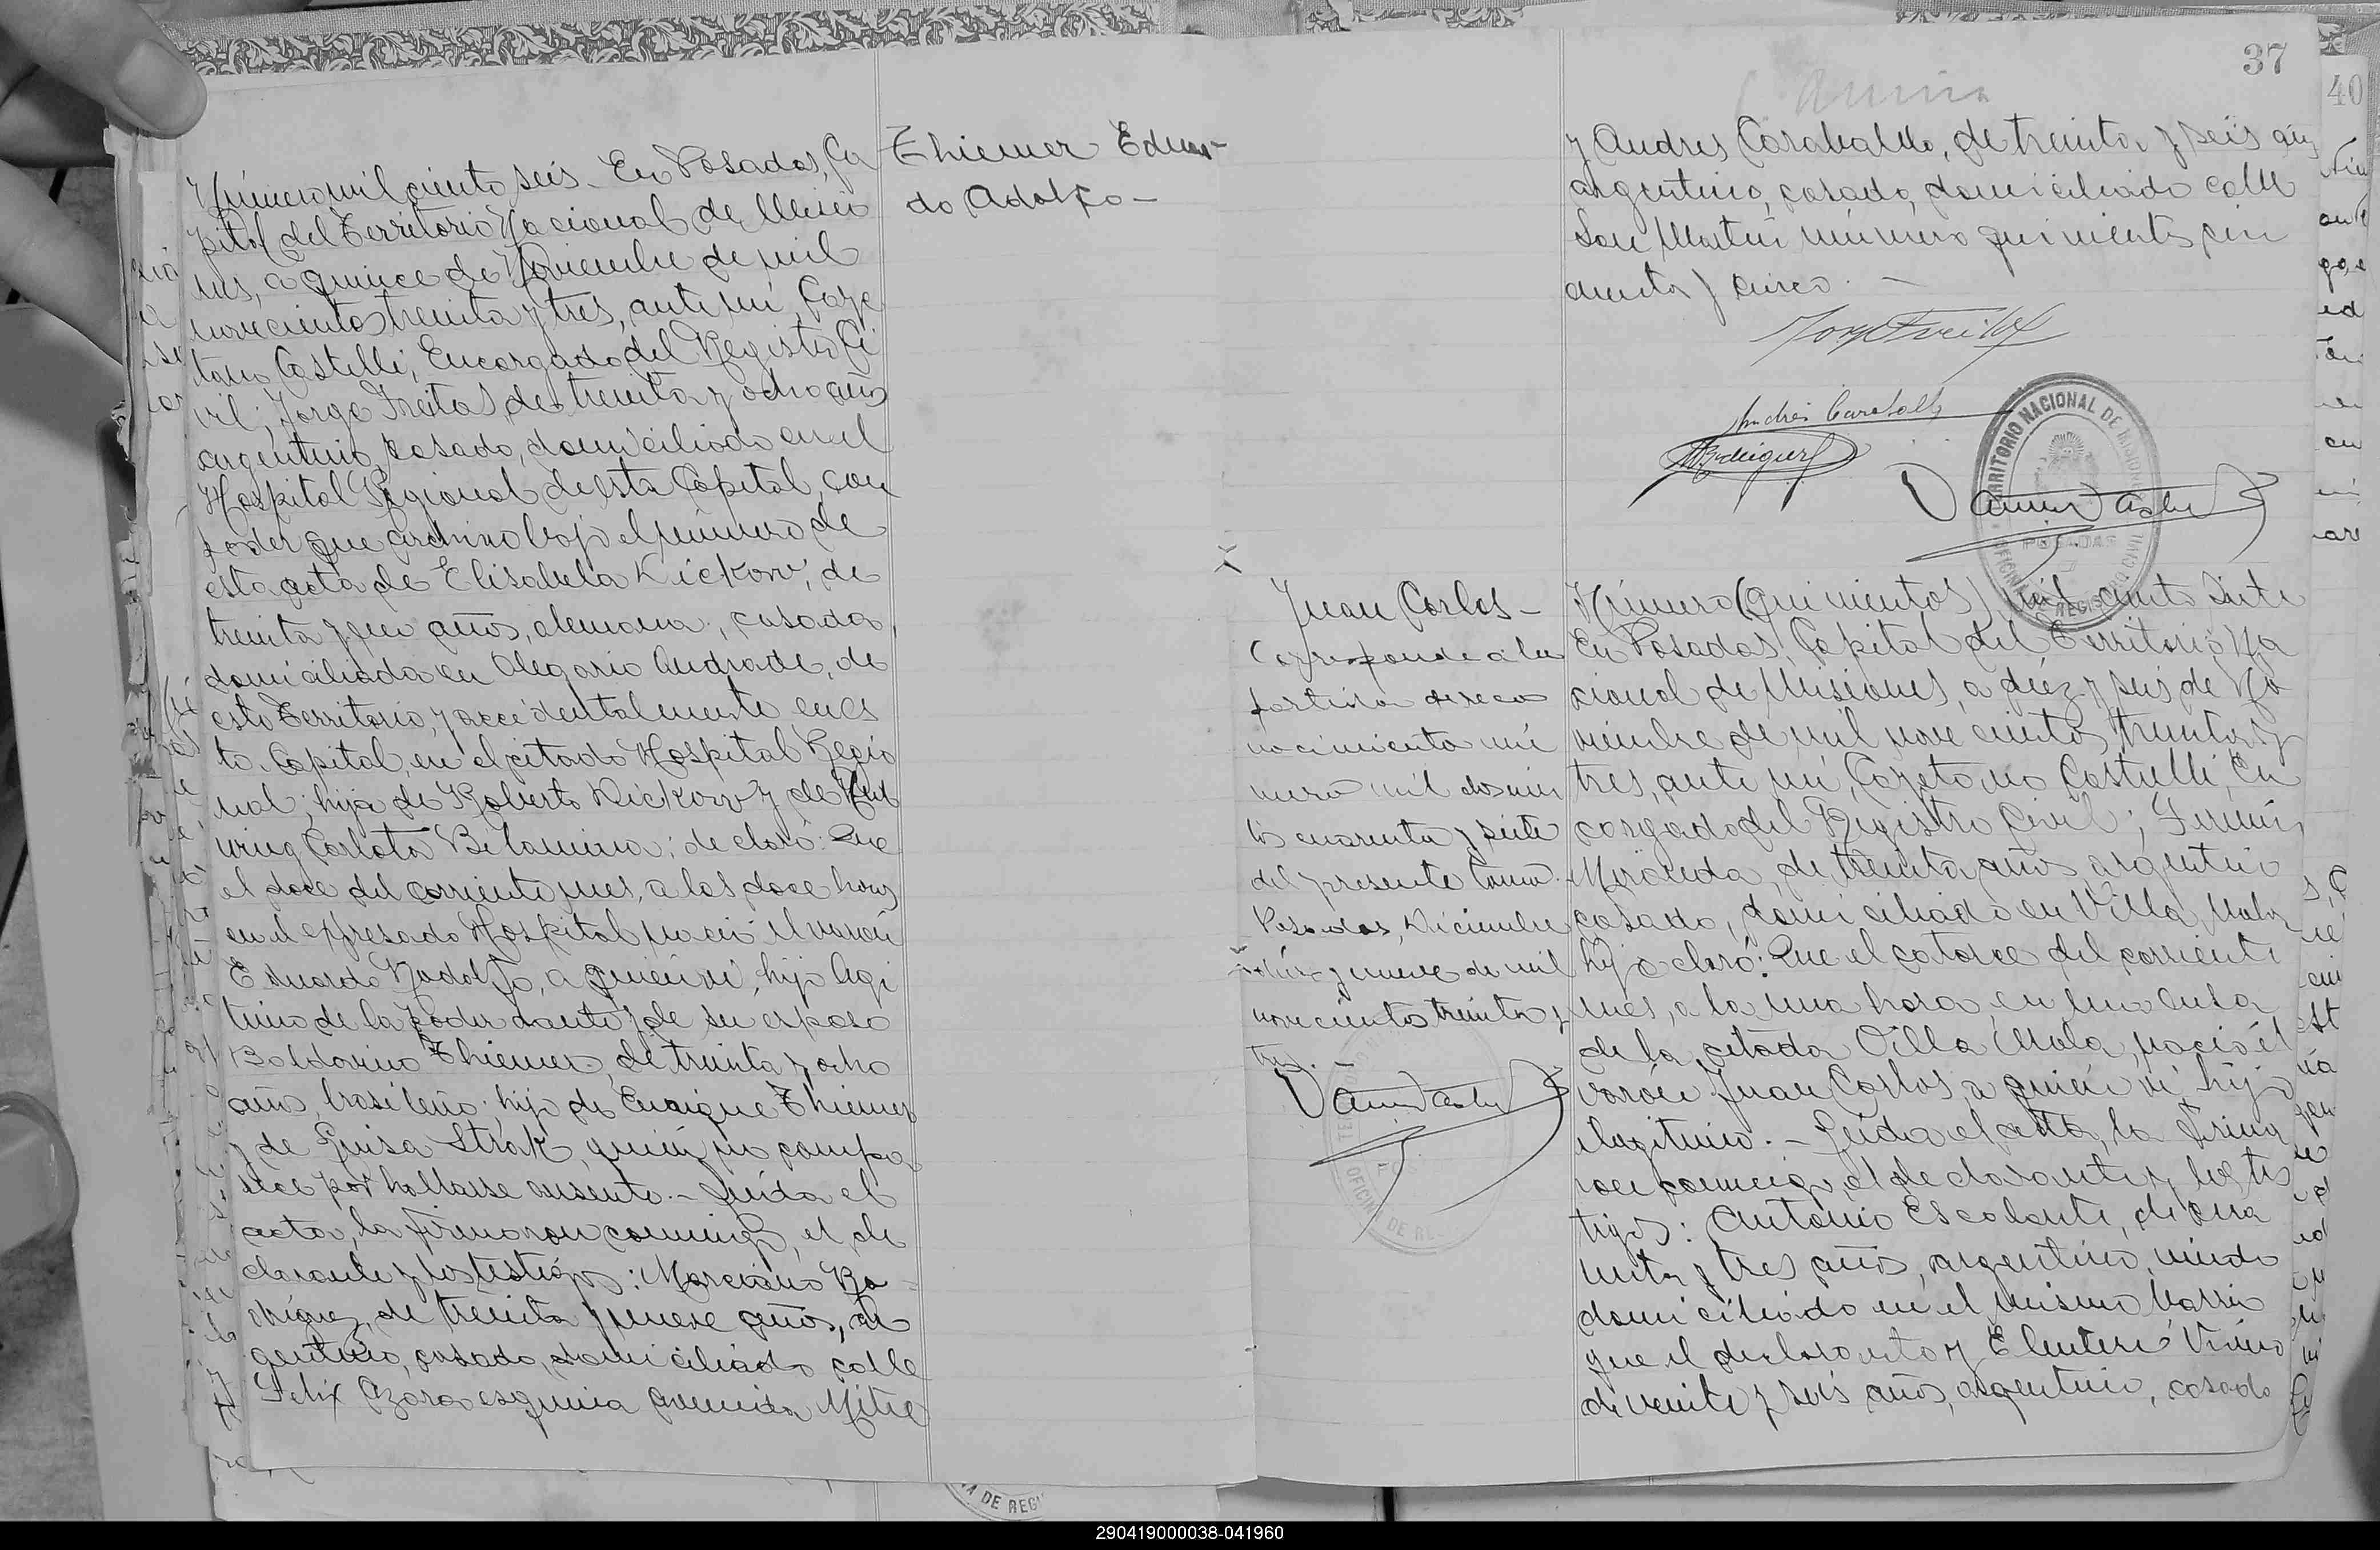 Número mil ciento seis. En Posadas, Ca
pital del Territorio Nacional de Misio
nes, a quince de Noviembre de mil
novecientos treinta y tres, ante mí, Caye
tano Castelli, Encargado del Registro Ci
vil; Jorge Freitas, de treinta y ocho años
argentino, casado, domiciliado en el
Hospital Regional de esta Capital, con
poder que archivo bajo el número de
esta acta de Elisabela Dickow, de
treinta y años, alemana, casada,
domiciliada en Olegario Andrade, de
este Territorio, y accidentalmente en es
ta Capital, en el citado Hospital Regio
nal; hija de Roberto Dickow y de
Carlota; declaró: Que
el doce del corriente mes, a las doce horas
en el expresado Hospital nació el varón
Eduardo Rodolfo, a quién ví, hijo legí
timo de la poderdante y de su esposo
Baldovino Thiemer, de treinta y ocho
años, brasileño, hijo de Enrique Thiemer
y de Luisa Strak, quién no compa
rece por hallarse ausente.- Leída el
acta, la firmaron conmigo, el de
clarante y los testigos: Marciano Ro
dríguez, de treinta y nueve años, ar
gentino, casado, domiciliado calle
Felix Azara esquina avenida Mitre
Thiemer Eduar-
do Adolfo-
37
40
y Andres Caraballo, de treinta y seis años
argentino, casado, domiciliado calle
San Martín número quinientos cin
cuenta y cinco.-
Jorge Freitas
Andrés Caraballo
MRodriguez
TERRITORIO NACIONAL DE MISIONES
POSADAS
OFICINA DE REGISTRO CIVIL
Juan Carlos-
Corresponde a la
partida de reco
nocimiento nú
mero mil doscien
tos cuarenta y siete
del presente tomo.
Posadas, Diciembre
diez y nueve de mil
novecientos treinta y
tres.-
Número (quinientos) mil ciento siete
En Posadas, Capital del Territorio Na
cional de Misiones, a diéz y seis de No
viembre de mil novecientos treinta y
tres, ante mí, Cayetano Castelli, En
cargado del Registro Civil; Fermín
Miranda, de treinta años argentino
casado, domiciliado en Villa Mola
declaró: Que el catorce del corriente
mes, a la una hora en una casa
de la citada Villa Mola, nació el
varón Juan Carlos, a quién ví, hijo
ilegítimo.- Leída el acta, la firma
ron conmigo, el declarante y los tes
tigos: Antonio Escalante, de cua
renta y tres años, argentino, viudo
domiciliado en el mismo barrio
que el declarante y Eleuterio
de veinte y seis años, argentino, casado
DE REGI
290419000038-041960